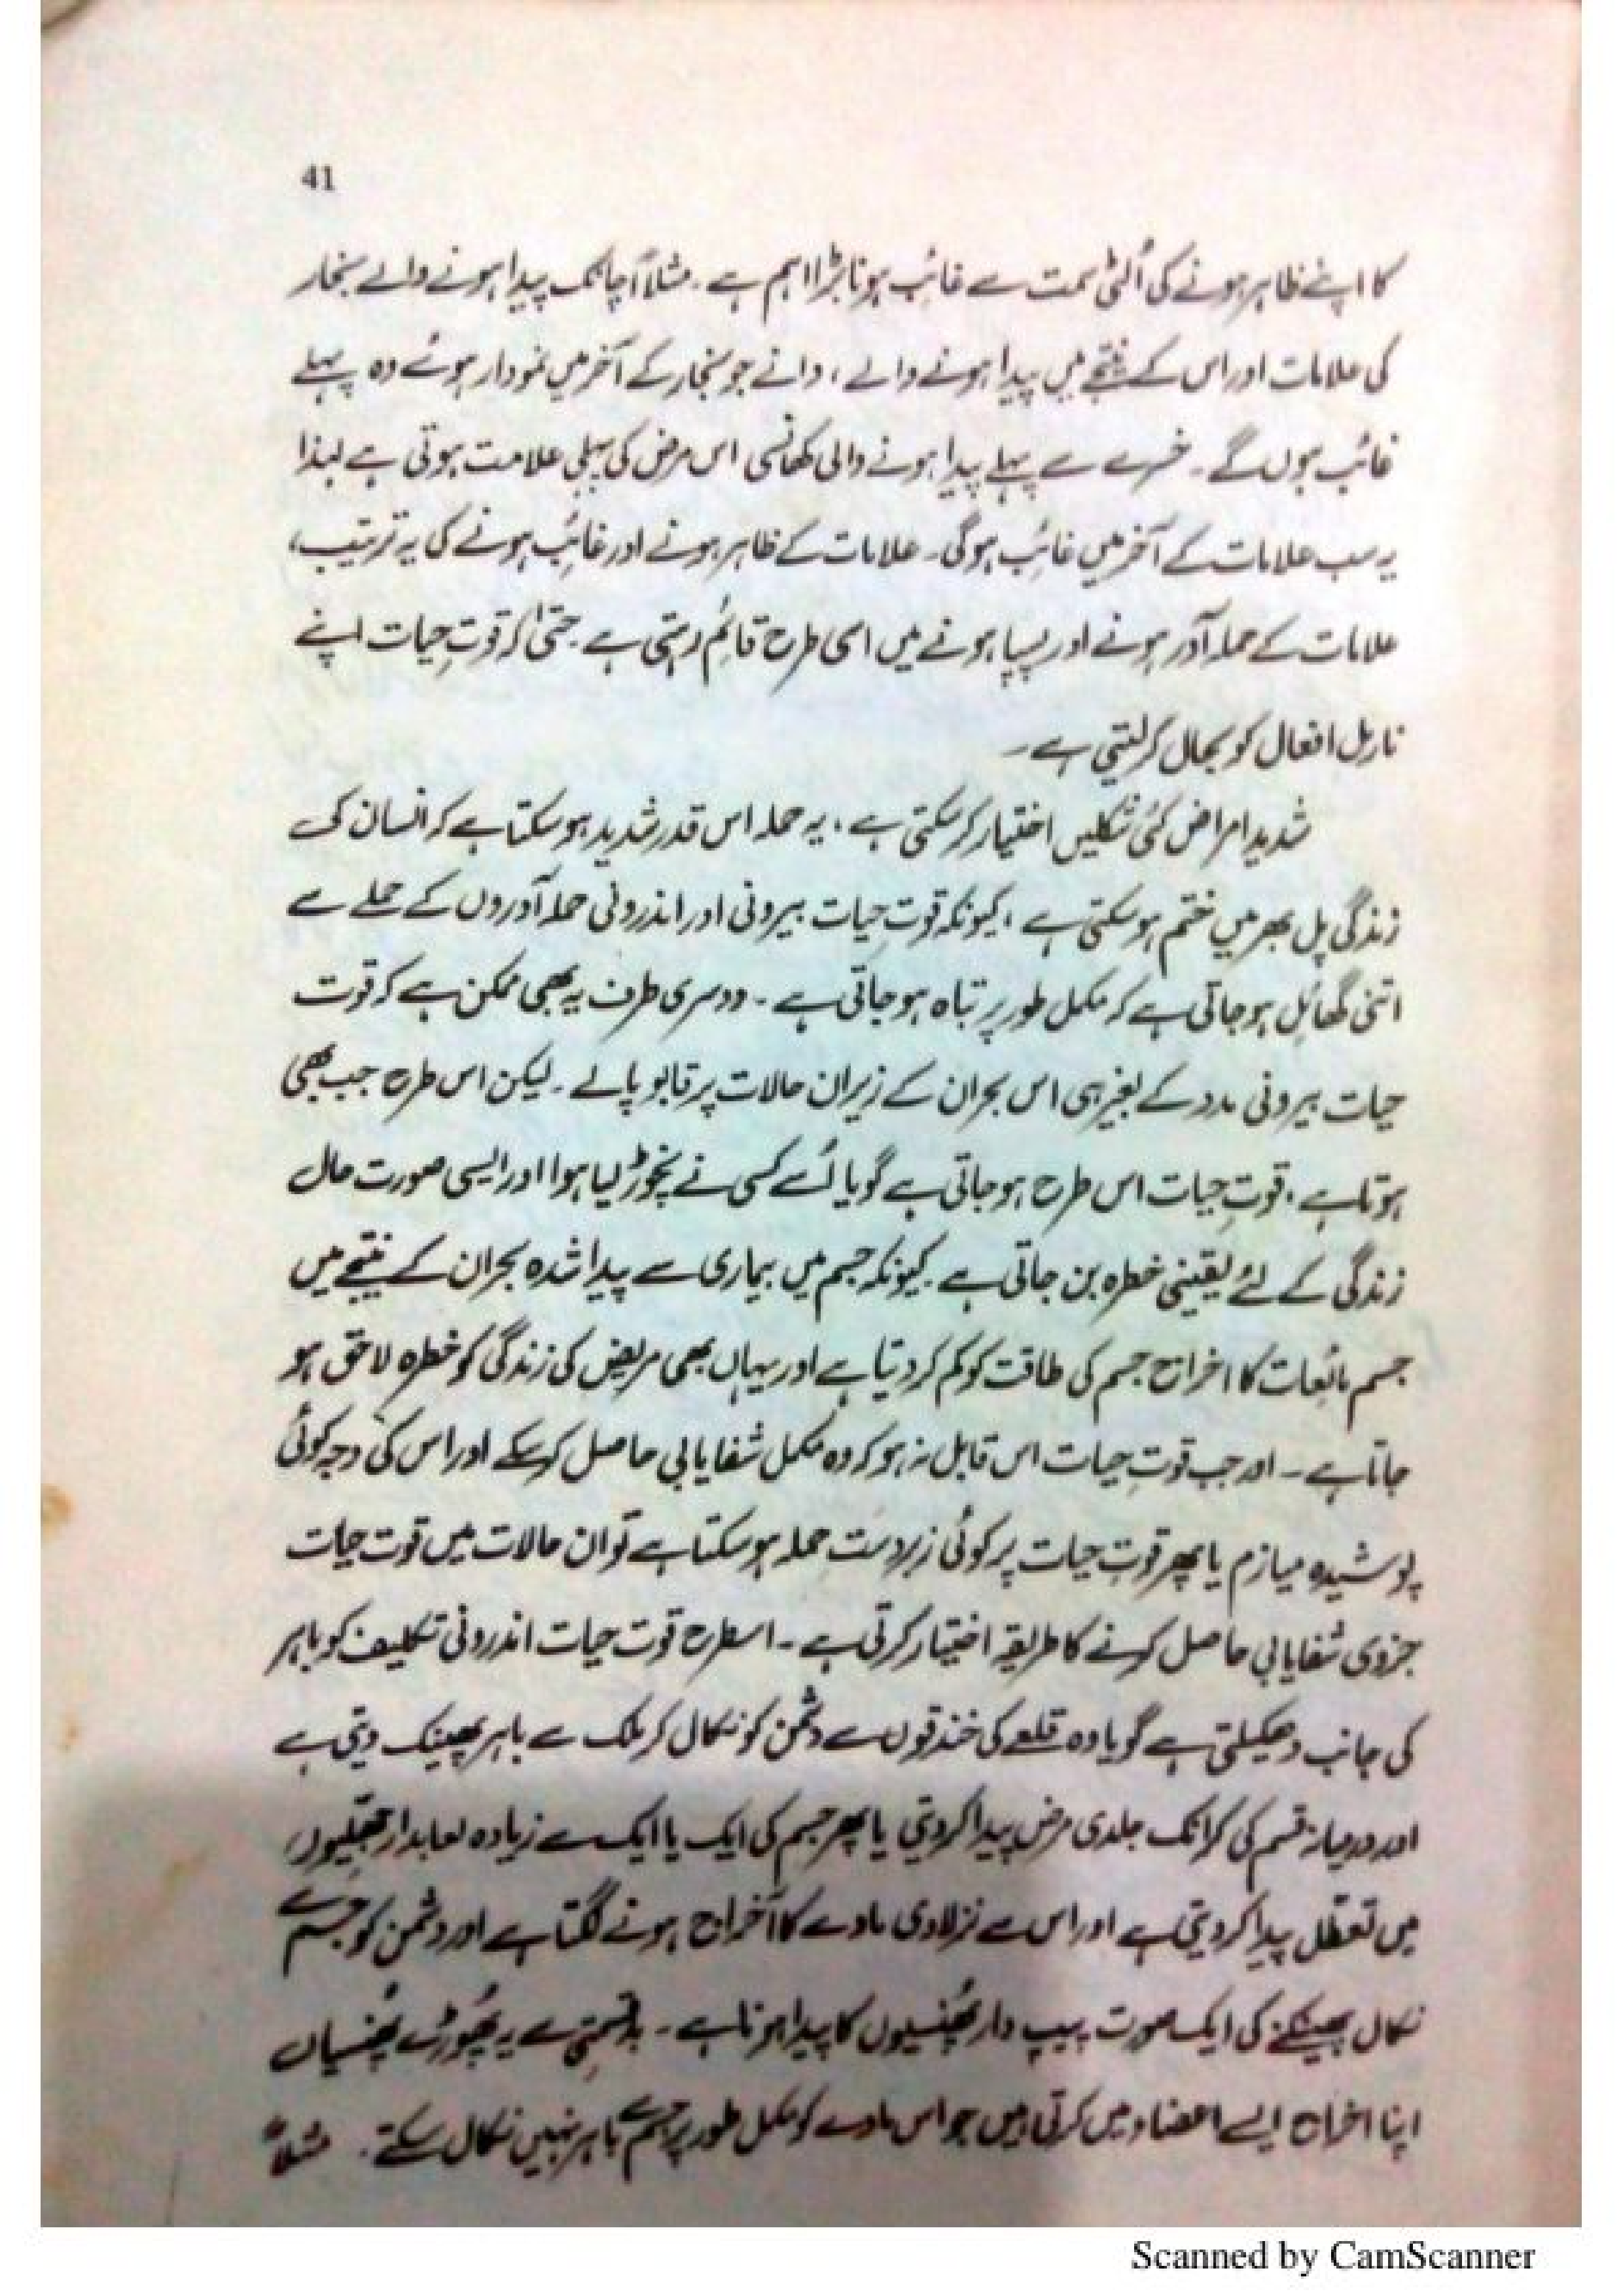 41
کا اپنے ظاہر ہونے کی اُلٹی سمت سے غائب ہونا بڑا اہم ہے۔ مثلاً اچانک پیدا ہونے والے بخار
کی علامات اور اس کے نتیجے میں پیدا ہونے والے، دانے جو بخار کے آخر میں نمودار ہوئے وہ پہلے
غائب ہوں گے۔ خسرے سے پہلے پیدا ہونے والی کھانسی اس مرض کی پہلی علامت ہوتی ہے لہذا
یہ سب علامات کے آخر میں غائب ہوگی۔ علامات کے ظاہر ہونے اور غائب ہونے کی یہ ترتیب،
علامات کے حملہ آور ہونے اور پسپا ہونے میں اسی طرح قائم رہتی ہے۔ حتیٰ کہ قوتِ حیات اپنے
نارمل افعال کو بحال کر لیتی ہے۔
شدید امراض کئی شکلیں اختیار کر سکتی ہے، یہ حملہ اس قدر شدید ہو سکتا ہے کہ انسان کی
زندگی پل بھر میں ختم ہو سکتی ہے، کیونکہ قوتِ حیات بیرونی اور اندرونی حملہ آوروں کے حملے سے
اتنی گھائل ہو جاتی ہے کہ مکمل طور پر تباہ ہو جاتی ہے۔ دوسری طرف یہ بھی ممکن ہے کہ قوت
حیات بیرونی مدد کے بغیر ہی اس بحران کے زیر ان حالات پر قابو پالے۔ لیکن اس طرح جب بھی
ہوتا ہے، قوتِ حیات اس طرح ہو جاتی ہے گویا اُسے کسی نے نچوڑ لیا ہو اور ایسی صورت حال
زندگی کے لئے یقینی خطرہ بن جاتی ہے۔ کیونکہ جسم میں بیماری سے پیدا شدہ بحران کے نتیجے میں
جسم مائعات کا اخراج جسم کی طاقت کو کم کر دیتا ہے اور یہاں بھی مریض کی زندگی کو خطرہ لاحق ہو
جاتا ہے۔ اور جب قوتِ حیات اس قابل نہ ہو کہ وہ مکمل شفایابی حاصل کرسکے اور اس کی وجہ کوئی
پوشیدہ میازم یا پھر قوتِ حیات پر کوئی زبردست حملہ ہو سکتا ہے تو ان حالات میں قوت حیات
جزوی شفایابی حاصل کرنے کا طریقہ اختیار کرتی ہے۔ اسطرح قوت حیات اندرونی تکلیف کو باہر
کی جانب دھکیلتی ہے گویا وہ قلعے کی خندقوں سے دشمن کو نکال کر ملک سے باہر پھینک دیتی ہے
اور درمیانہ قسم کی کرانک جلدی مرض پیدا کر دیتی یا پھر جسم کی ایک یا ایک سے زیادہ لعابدار جھلیوں،
میں تعطل پیدا کر دیتی ہے اور اس سے نزلاوی مادے کا آخراج ہونے لگتا ہے اور دشمن کو جسم سے
نکال پھینکنے کی ایک صورت پیپ دار پھنسیوں کا پیدا ہونا ہے۔ بدقسمتی سے یہ پھوڑے پھنسیاں
اپنا اخراج ایسے اعضاء میں کرتی ہیں جو اس مادے کو مکمل طور پر جسم سے باہر نہیں نکال سکتے۔ مثلاً
Scanned by CamScanner